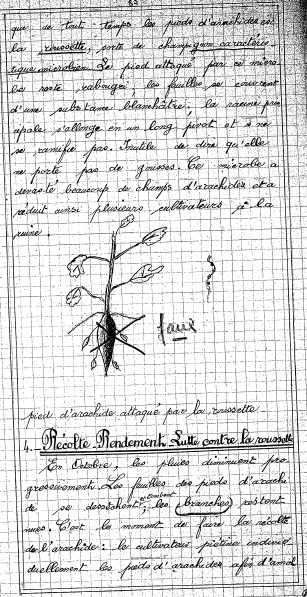 que de tout temps les pieds d'arachides est
la roussette, sorte de champignon caractéris
tique microbien. Le pied attaqué par ce micro
be reste rabougri, les feuilles se couvrent
d'une substance blanchâtre; la racine prin
cipale s'allonge en un long pivot et ne
se ramifie pas. Inutile de dire qu'elle
ne porte pas de gousses. Ce microbe a
dévasté beaucoup de champs d'arachides et a
réduit ainsi plusieurs cultivateurs à la
ruine.
faux
pied d'arachide attaqué par la roussette
4. Récolte-Rendement-Lutte contre la roussette
En Octobre, les pluies diminuent pro
gressivement. Les feuilles des pieds d'arachi
de se dessèchent, tombent les branches restent
nues. C'est le moment de faire la récolte
de l'arachide: le cultivateur piétine individ
duellement les pieds d'arachides afin d'amol